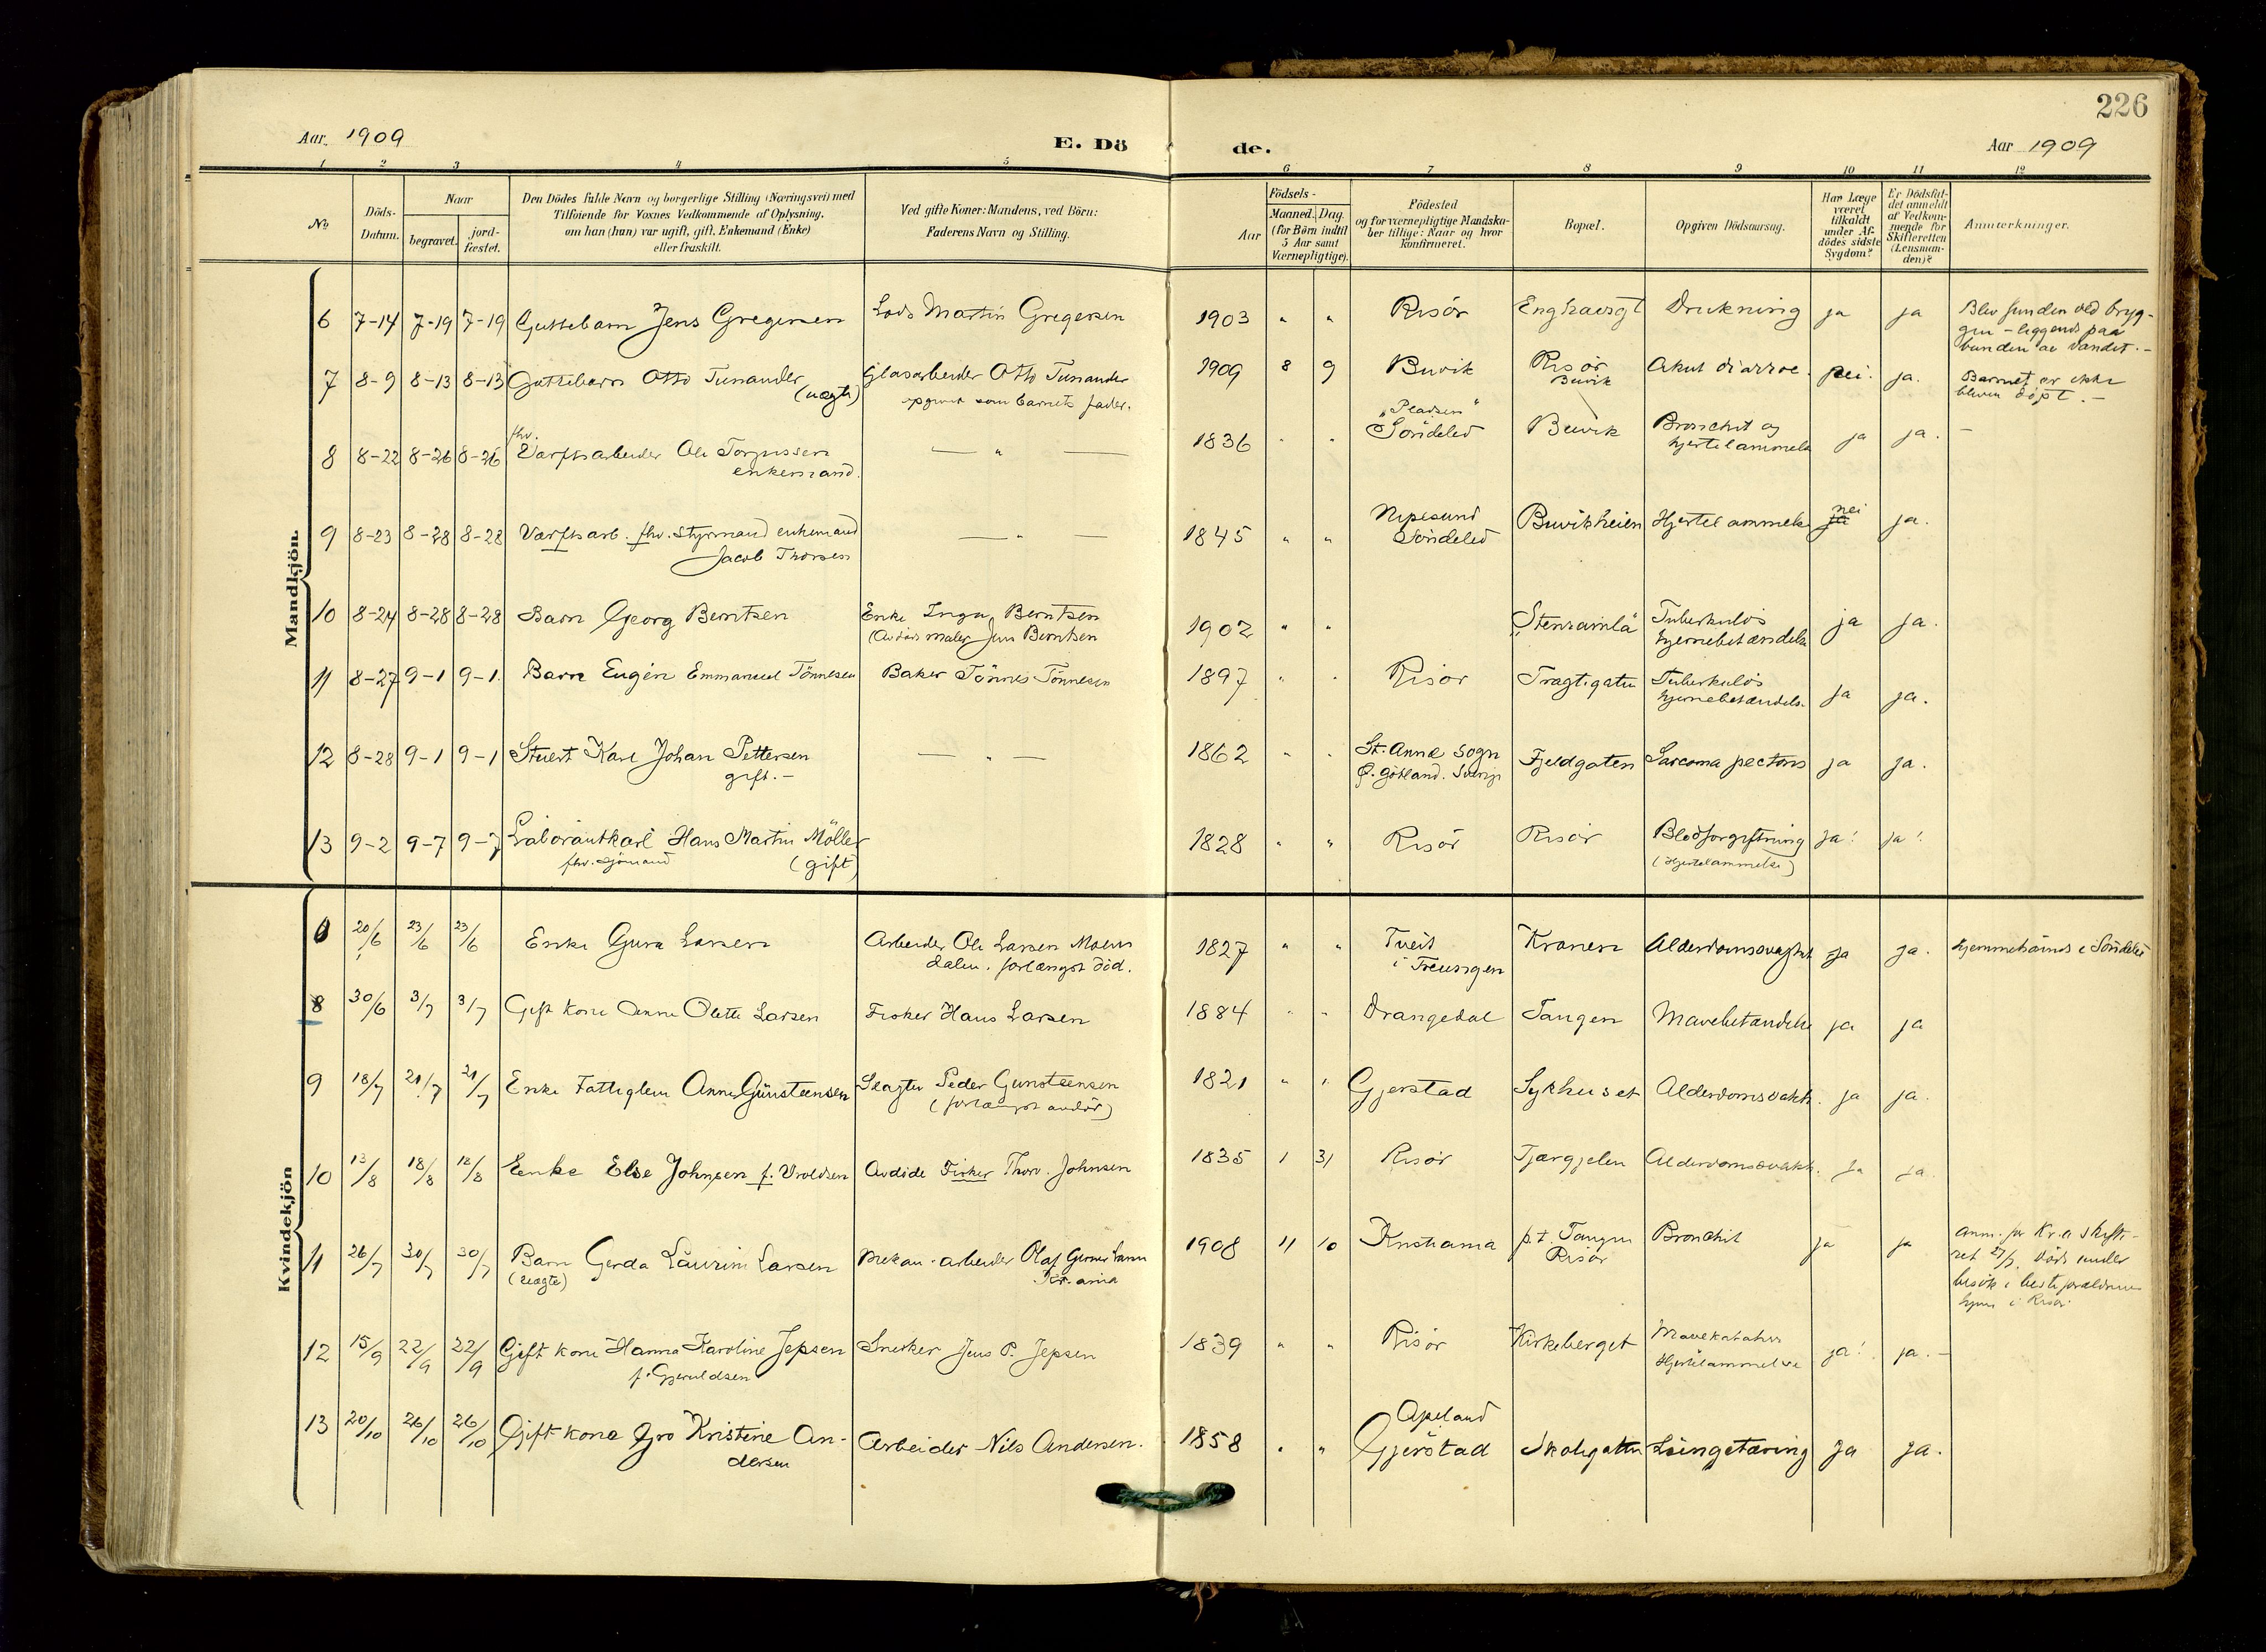 226
Aar 1909
E. Dö
de.
Aar 1909
1 2 3 4 5 6 7 8 9 10 11 12
No.
Döds-Datum.
Naar
begravet.
jord-fæstet.
Den Dödes fulde Navn og borgerlige Stilling (Næringsvei) med
Tilföiende for Voxnes Vedkommende af Oplysning,
om han (hun) var ugift, gift, Enkemand (Enke)
eller fraskilt.
Ved gifte Koner: Mandens, ved Börn:
Faderens Navn og Stilling.
Födsels-
Aar
Maaned. Dag.
(for Börn indtil
5 Aar samt
Værnepligtige).
Födested
og for værnepligtige Mandska-
ber tillige: Naar og hvor
konfirmeret.
Bopæl.
Opgiven Dödsaarsag.
Har Læge
været
tilkaldt
under Af-
dödes sidste
Sygdom?
Er Dödsfal-
det anmeldt
af Vedkom-
mende for
Skifteretten
(Lensman-
den)?
Anmærkninger.
Mandkjön.
6 7-14 7-19 7-19 Guttebarn Jens Gregersen Lods Martin Gregersen 1903 " " Risör Enghavsgt Drukning ja ja Blev funden ved bryg-
gen - liggende paa
bunden av vandet. -
7 8-9 8-13 8-13 Guttebarn Otto Tunander Glasarbeider Otto Tunander 1909 8 9 Buvik Risör Akut diarroe. nei. ja. Barnet er ikke
(uægte) opgivet som barnets fader. Buvik bleven döpt. -
fhv. "Pladsen"
8 8-22 8-26 8-26 Værftsarbeider Ole Torjussen — " — 1836 " " Söndeled Buvik Bronchit og ja ja. —
enkemand. hjertelammelse
9 8-23 8-28 8-28 Værftsarb. fhv. Styrmand enkemand — " — 1845 " " Nipesund Buvikheien Hjertelammelse ja nei ja.
Jacob Thorsen Söndeled
10 8-24 8-28 8-28 Barn Georg Berntsen Enke Inga Berntsen 1902 " " "Stensamla" Tuberkulös ja ja.
(Avdöde maler Jens Berntsen hjernebetændelse
11 8-27 9-1 9-1. Barn Eugén Emmanuel Tönnesen Baker Tönnes Tönnesen 1897 " " Risör Tragtigaten Tuberkulös ja ja.
hjernebetændels.
12 8-28 9-1 9-1 Stuert Karl Johan Pettersen — " — 1862 " " St. Anna Sogn Fjeldgaten Sarcoma pectoris ja ja.
gift. - Ö. Götland. Sverige
13 9-2 9-7 9-7 Laborantkarl Hans Martin Möller 1828 " " Risör Risör Blodforgiftning ja! ja!
fhv. sjömand (gift) (Hjertelammelse)
Kvindekjön
20/6 23/6 23/6 Enke Gura Larsen Arbeider Ole Larsen Moens 1827 " " Tveit Kranen Alderdomssvaghet ja ja. hjemmehörende i Söndeled
dalen. forlængst död. i Treungen
8 30/6 3/7 3/7 Gift kone Anne Olette Larsen Fisker Hans Larsen 1884 " " Drangedal Tangen Mavebetændelse ja ja
9 18/7 21/7 21/7 Enke Fattiglem Anne Gunsteensen Slagter Peder Gunsteensen 1821 " " Gjerstad Sykhuset Alderdomssvakh. ja ja.
(forlængst avdöd)
10 13/8 18/8 18/8 Enke Else Johnsen f. Vroldsen Avdöde Fisker Thorv. Johnsen 1835 1 31 Risör Tjærgjelen Alderdomssvakh. ja ja.
11 26/7 30/7 30/7 Barn Gerda Laurine Larsen Mekan. arbeider Olaf Larsen 1908 11 10 Kristiania p.t. Tangen Bronchit ja ja anm. for Kr.a Skifte-
(uægte) Kr.ania Risör ret 27/7. Död under
besök i besteforældrenes
hjem i Risör.
12 15/9 22/9 22/9 Gift kone Hanna Karoline Jepsen Snekker Jens P. Jepsen 1839 " " Risör Kirkeberget Mavekatarh ja! ja. -
f. Gjeruldsen Hjertelammelse
Apeland
13 20/10 26/10 26/10 Gift kone Gro Kristine An- Arbeider Nils Andersen. 1858 " " Gjerstad Skolegatten Lungetæring ja ja.
dersen